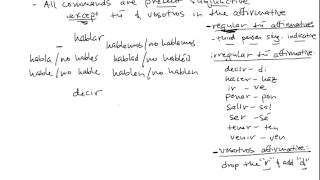 - All commands are present subjunctive
except tú & vosotros in the affirmative
- regular tú affirmative
- third person sing. indicative
irregular tú affirmative:
decir - di
hacer - haz
ir - ve
poner - pon
salir - sal
ser - sé
tener - ten
venir - ven
- vosotros affirmative:
drop the "r" & add "d"
hablar
- hablemos/no hablemos
habla/no hables hablad/no habléis
hable/no hable hablen/no hablen
decir